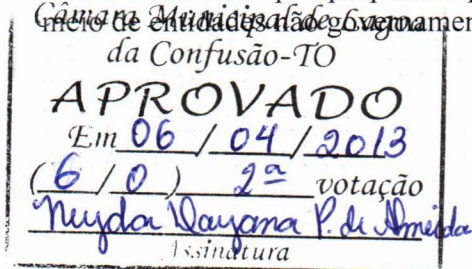 Câmara Municipal de Lagoa
meio de entidades não governamen
da Confusão-TO
APROVADO
Em 06 / 04 / 2013
( 6 / 0 ) 2ª votação
Neyda Dayana P. de Almeida
Assinatura